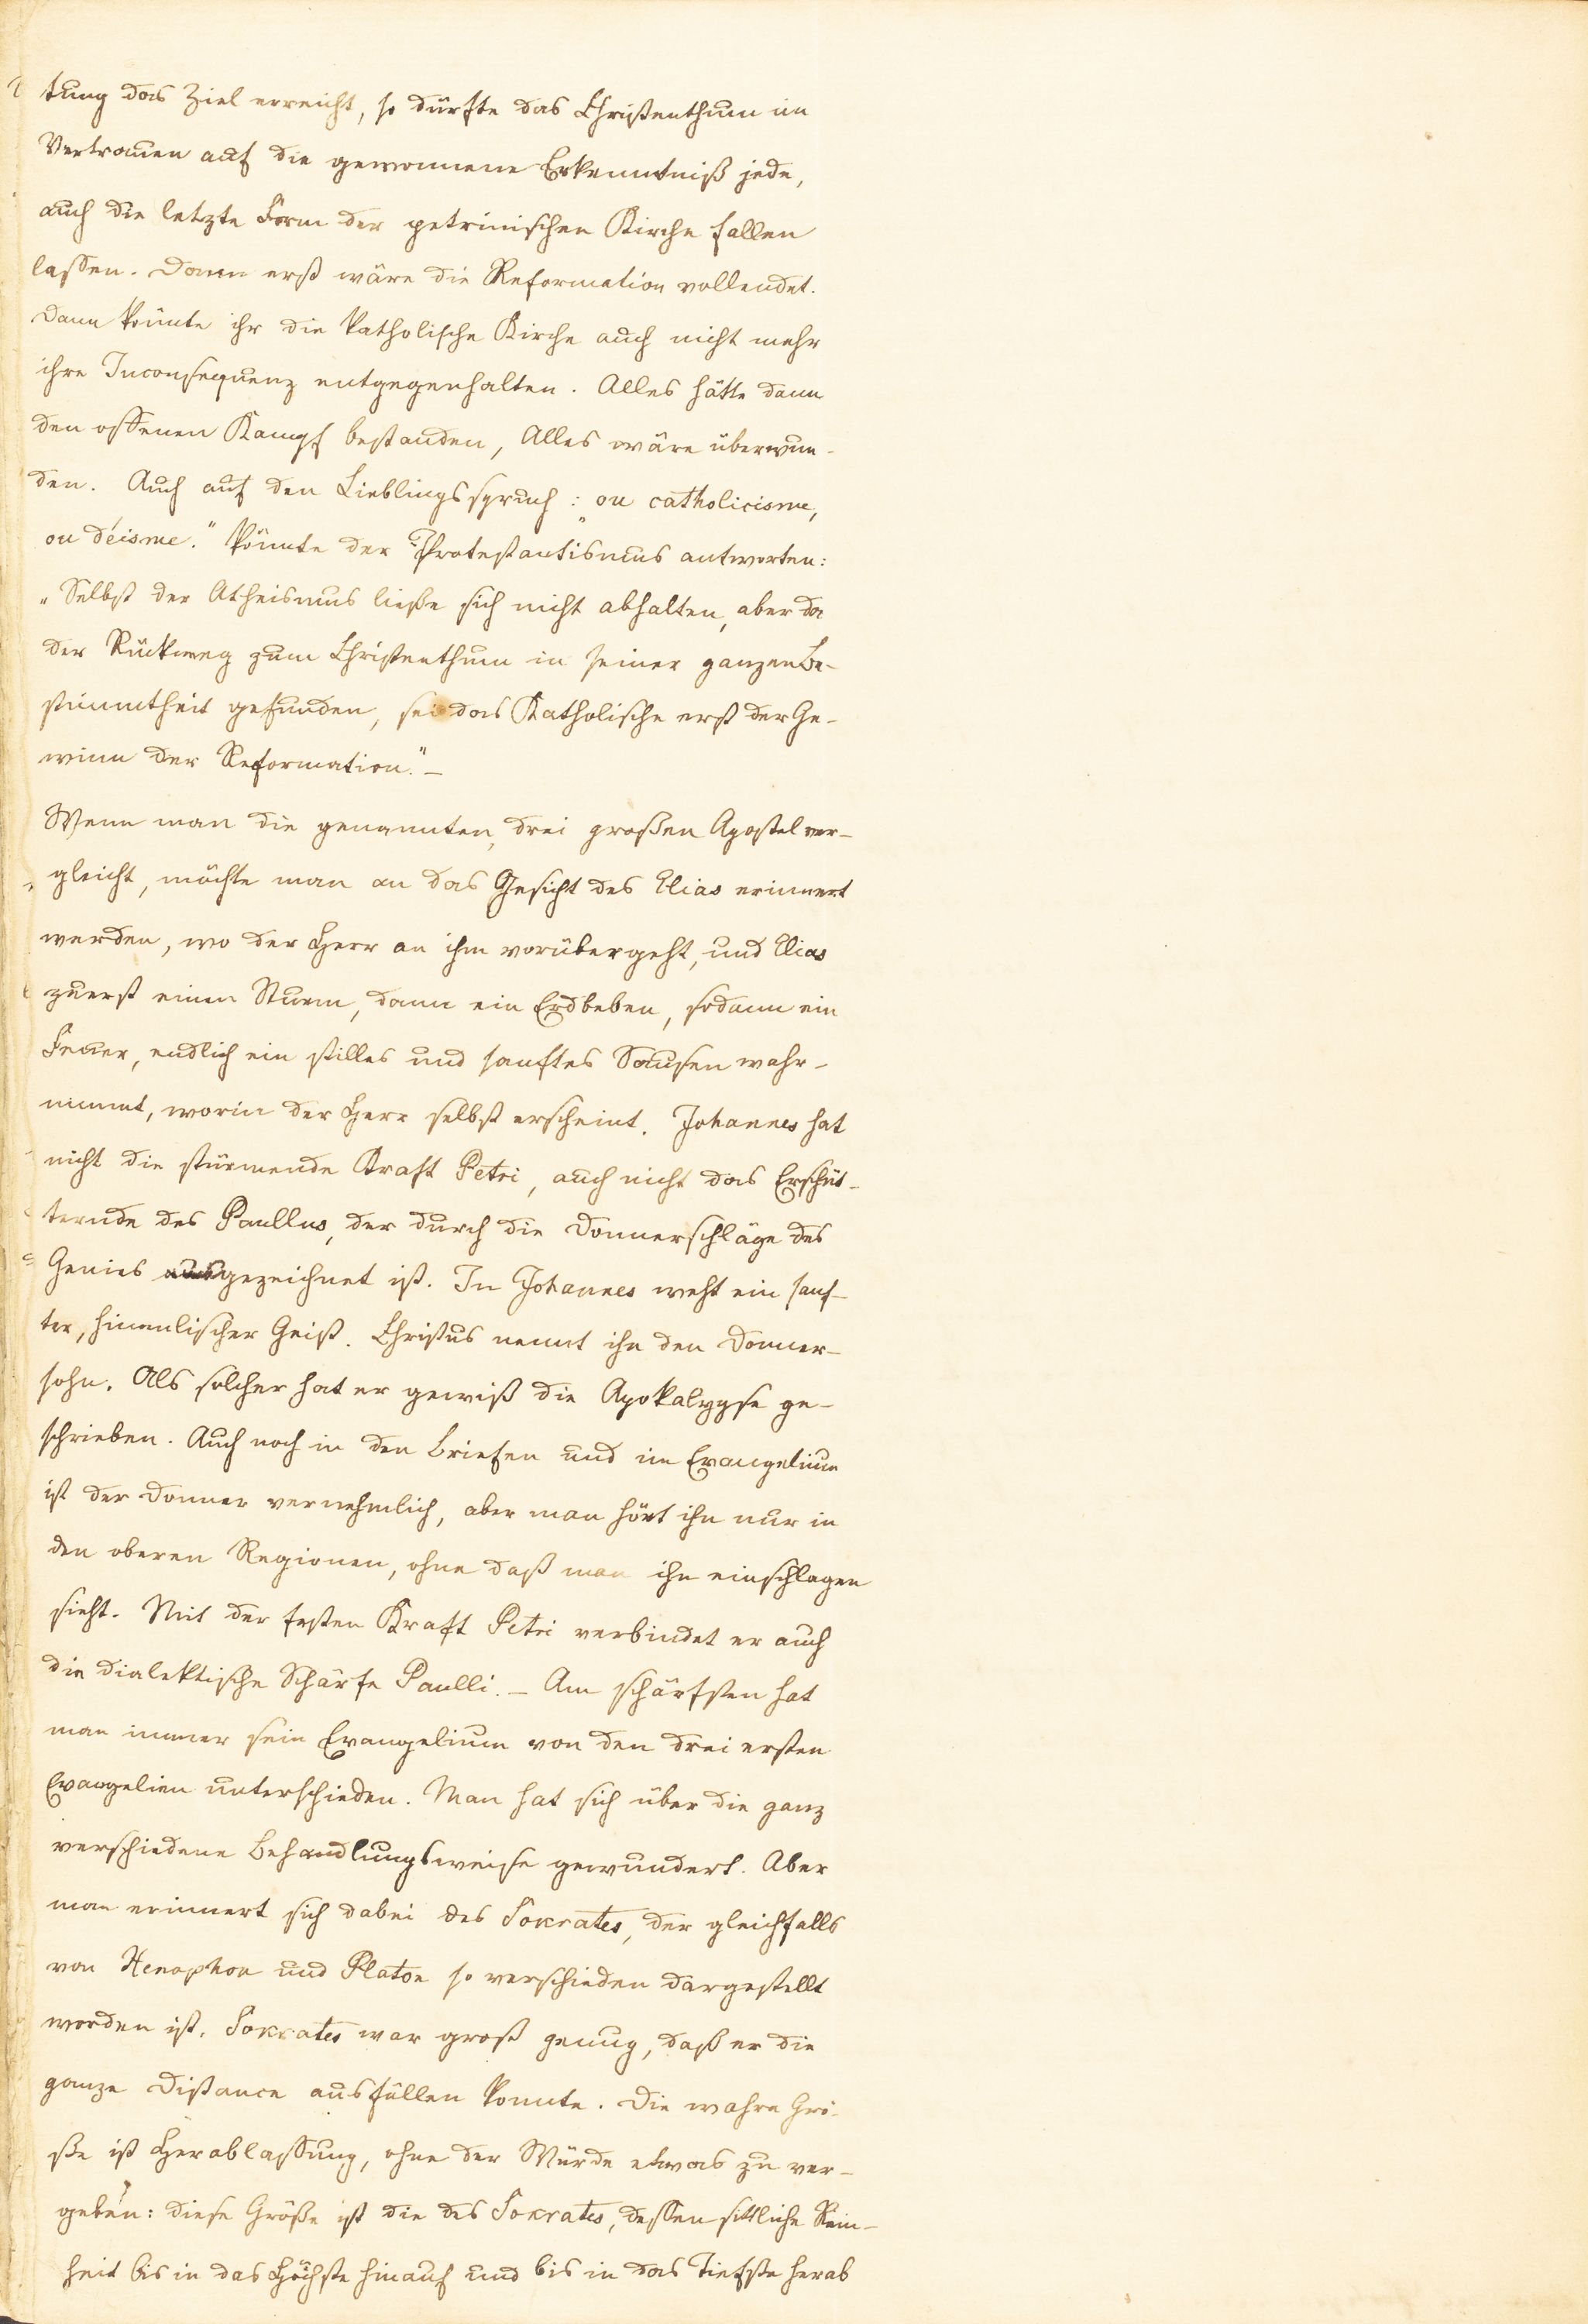 tung das Ziel erreicht, so dürfte das Christenthum im
Vertrauen auf die gewonnene Erkenntniß jede,
auch die letzte Form der petrinischen Kirche fallen
lassen. Dann erst wäre die Reformation vollendet.
Dann könnte ihr die katholische Kirche auch nicht mehr
ihre Inconsequenz entgegenhalten. Alles hätte dann
den offenen Kampf bestanden, Alles wäre überwun-
den. Auch auf den Lieblingsspruch: „ou catholicisme,
ou déisme." könnte der Protestantismus antworten:
„Selbst der Atheismus ließe sich nicht abhalten, aber da
der Rückweg zum Christenthum in seiner ganzen Be-
stimmtheit gefunden, sei das Katholische erst der Ge-
winn der Reformation." –
Wenn man die genannten, drei großen Apostel ver-
gleicht, möchte man an das Gesicht des Elias erinnert
werden, wo der Herr an ihm vorübergeht, und Elias
zuerst einen Sturm, dann ein Erdbeben, sodann ein
Feuer, endlich ein stilles und sanftes Sausen wahr-
nimmt, worin der Herr selbst erscheint. Johannes hat
nicht die stürmende Kraft Petri, auch nicht das Erschüt-
ternde des Paullus, der durch die Donnerschläge des
Genies ausgezeichnet ist. In Johannes weht ein sanf-
ter, himmlischer Geist. Christus nennt ihn den Donner-
sohn. Als solcher hat er gewiß die Apokalypse ge-
schrieben. Auch noch in den Briefen und im Evangelium
ist der Donner vernehmlich, aber man hört ihn nur in
den oberen Regionen, ohne daß man ihn einschlagen
sieht. Mit der festen Kraft Petri verbindet er auch
die dialektische Schärfe Paulli. – Am schärfsten hat
man immer sein Evangelium von den drei ersten
Evangelien unterschieden. Man hat sich über die ganz
verschiedene Behandlungsweise gewundert. Aber
man erinnert sich dabei des Sokrates, der gleichfalls
von Xenophon und Platon so verschieden dargestellt
worden ist. Sokrates war groß genug, daß er die
ganze Distance ausfüllen konnte. Die wahre Grö-
ße ist Herablassung, ohne der Würde etwas zu ver-
geben: diese Größe ist die des Sokrates, dessen sittliche Rein-
heit bis in das Höchste hinauf und bis in das Tiefste herab